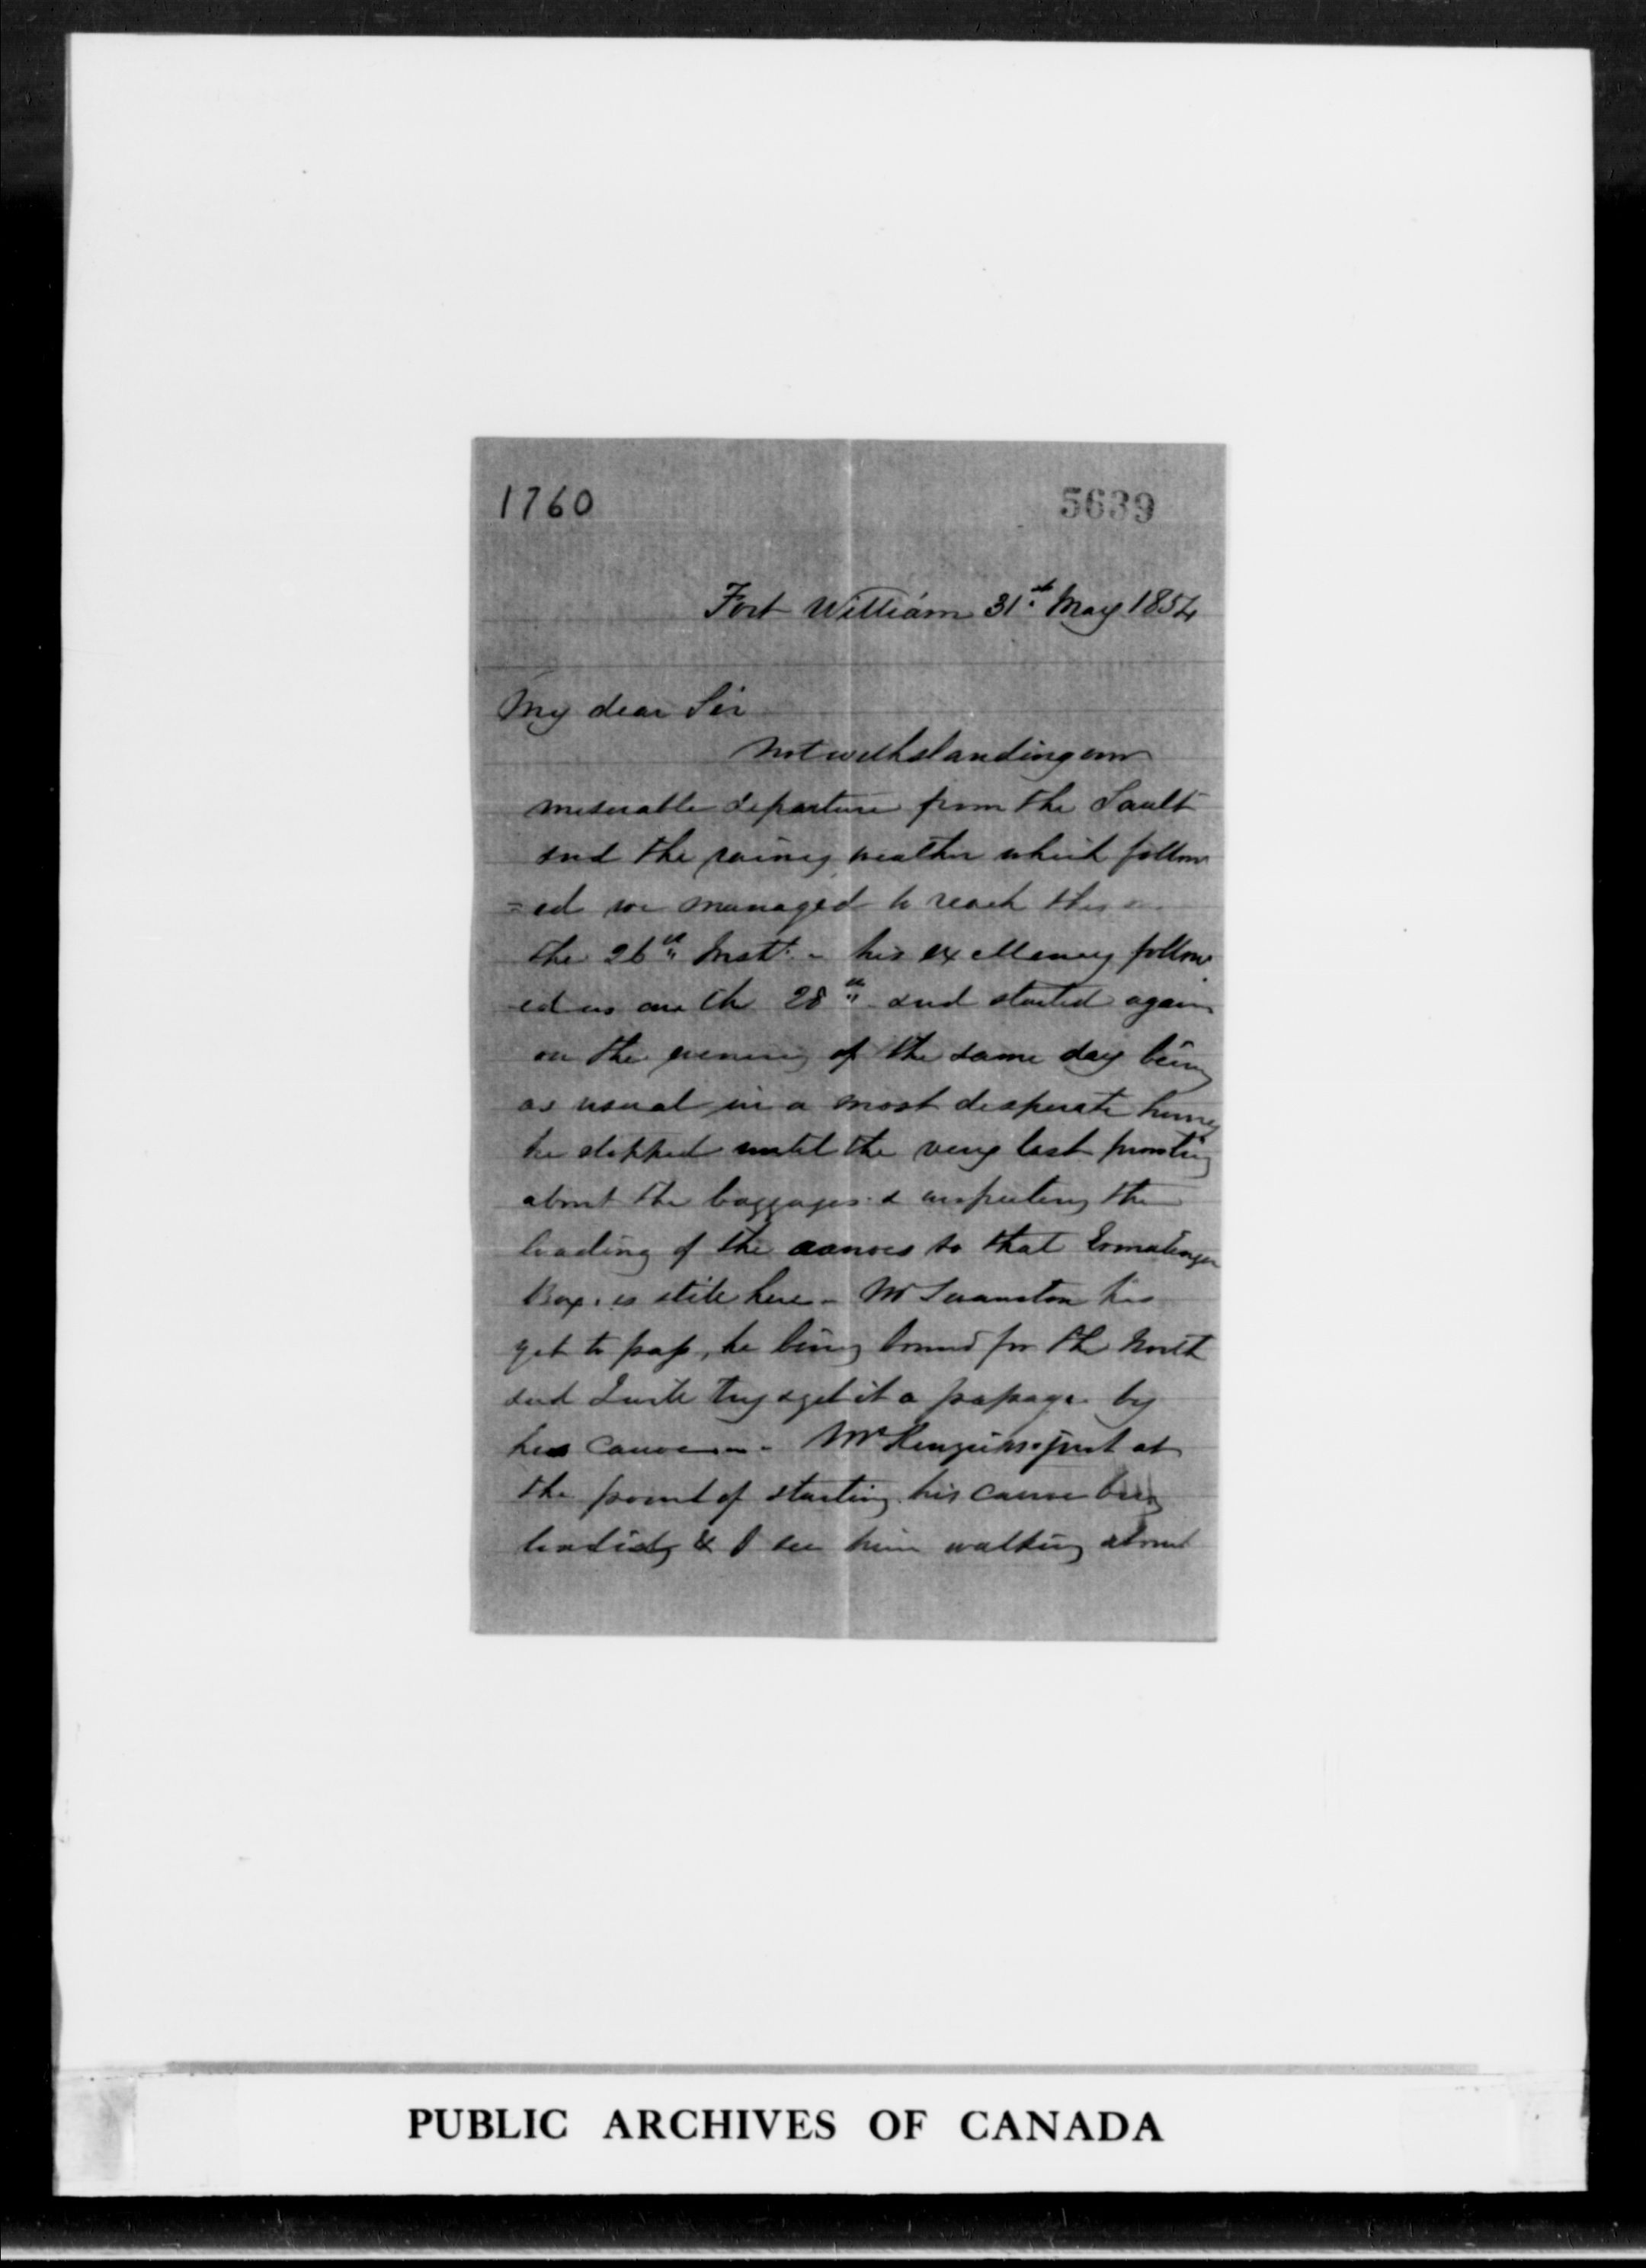 1760 5639
Fort William 31st May 1854
My dear Sir
Notwithstanding our
miserable departure from the Sault
and the rainy weather which follow
=ed we managed to reach this on
the 26th Inst. - his excellency follow
ed us on the 28th and started again
on the evening of the same day being
as usual in a most desperate hurry
he stopped until the very last
about the baggages & inspecting the
loading of the canoes so that Ermatinger
Box. is still here - Mr Swanston has
yet to pass, he being bound for the North
and I will try & get it a passage by
his canoe - Mr just at
the point of starting his canoe being
loading & I see him walking about
PUBLIC ARCHIVES OF CANADA